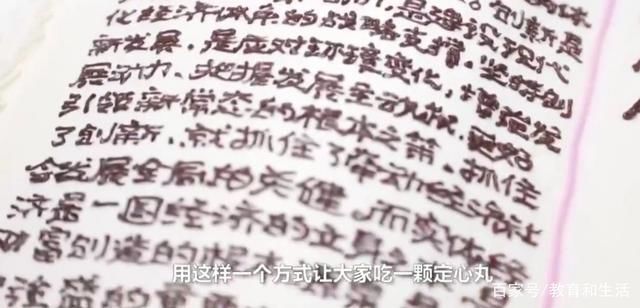 创新是
化经济体系的战略支撑。坚持创
新发展，是应对环境变化，增强发
展动力、把握发展主动权，更好
引领新常态的根本之策。抓住
了创新，就抓住了牵动经济社
会发展全局的关健。而实体经
济是一国经济的立身之
财富创造的根
用这样一个方式让大家吃一颗定心丸
百家号/教育和生活